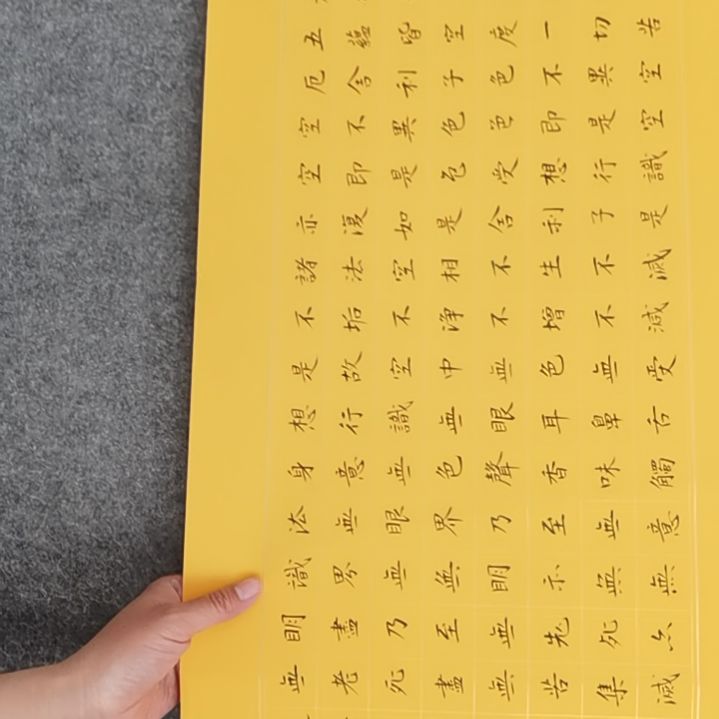 五蘊皆空度一切苦
厄舍利子色不異空
空不異色色即是空
空即是色受想行識
亦復如是舍利子是
諸法空相不生不滅
不垢不淨不增不減
是故空中無色無受
想行識無眼耳鼻舌
身意無色聲香味觸
法無眼界乃至無意
識界無無明亦無無
明盡乃至無老死亦
無老死盡無苦集滅